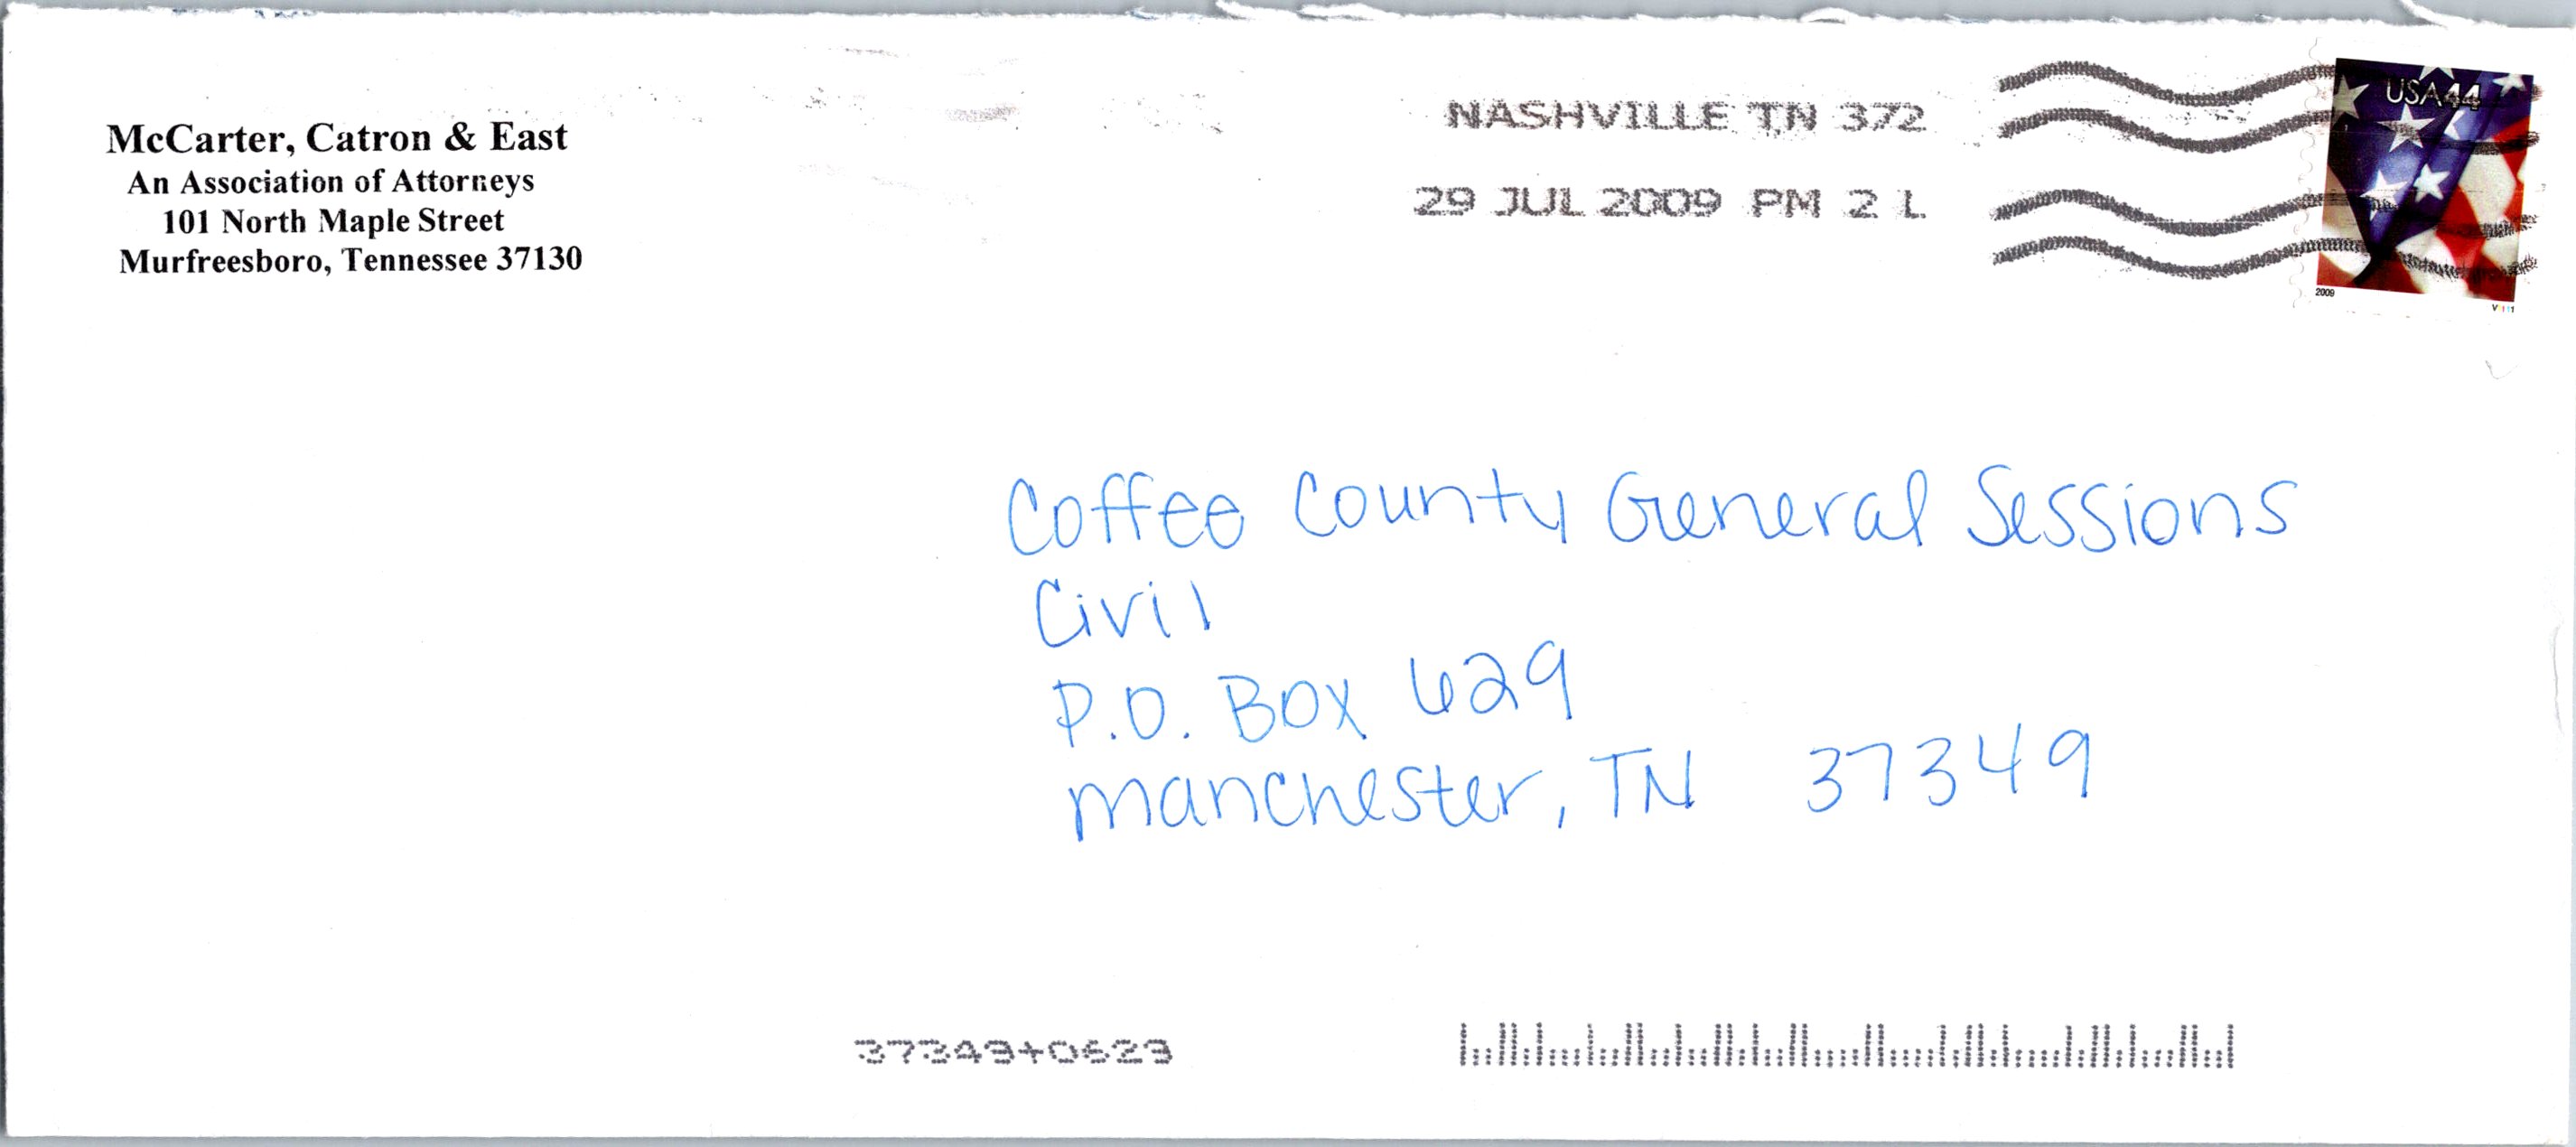 McCarter, Catron & East
An Association of Attorneys
101 North Maple Street
Murfreesboro, Tennessee 37130
NASHVILLE TN 372
29 JUL 2009 PM 2 L
USA 44
2009
V1111
Coffee County General Sessions
Civil
P.O. Box 629
Manchester, TN 37349
37349+0629